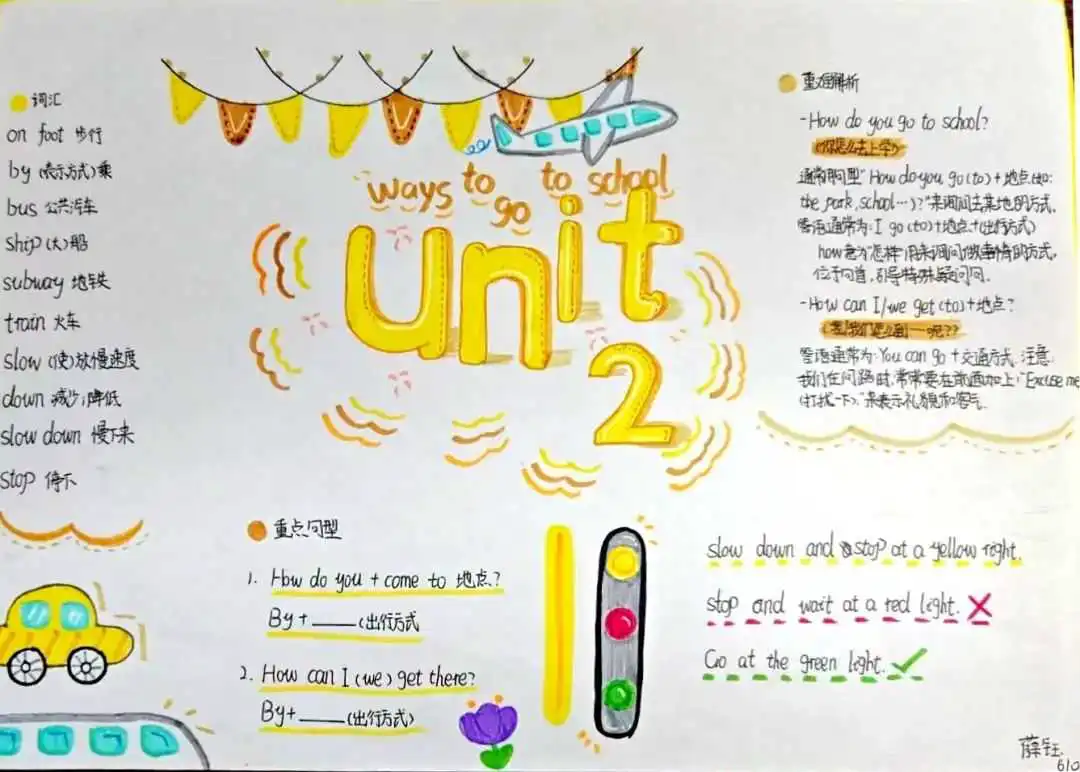 词汇
on foot 步行
by (表示方式)乘
bus 公共汽车
ship (大)船
subway 地铁
train 火车
slow (使)放慢速度
down 减少;降低
slow down 慢下来
stop 停下
ways to go to school
unit 2
重难解析
-How do you go to school?
(你怎么去上学?)
通常用句型"How do you go(to)+地点(如:
the park, school…)?"来询问去某地的方式,
答语通常为:I go(to)+地点+(出行方式)
how意为"怎样"用来询问做事情的方式,
位于句首,引导特殊疑问句.
-How can I/we get(to)+地点?
答语通常为:You can go+交通方式.注意:
我们在问路时,常常要在前面加上:"Excuse me
(打扰一下)."来表示礼貌和客气.
重点句型
1. How do you + come to 地点?
By + ____ (出行方式
2. How can I (we) get there?
By+ ____ (出行方式)
slow down and stop at a yellow right.
stop and wait at a red light.
Go at the green light.
薛钰.
610